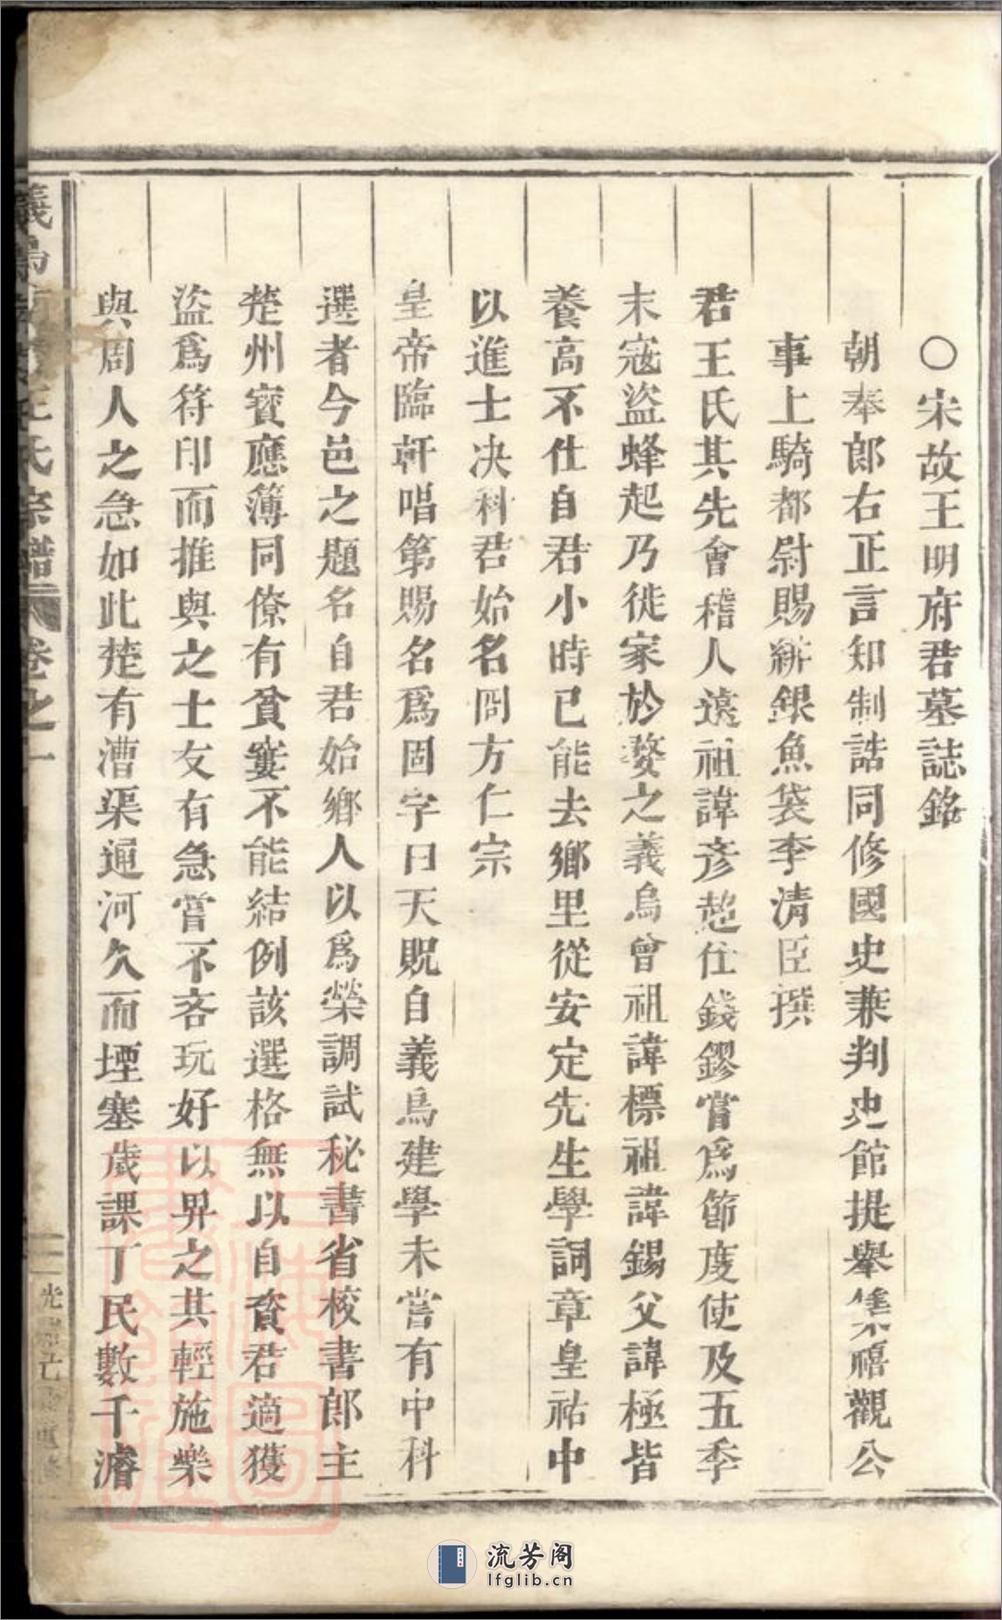 ○宋故王明府君墓誌銘
朝奉郎右正言知制誥同修國史兼判史館提舉集禧觀公
事上騎都尉賜緋銀魚袋李清臣撰
君王氏其先會稽人遠祖諱彥超仕錢鏐嘗爲節度使及五季
末寇盜蜂起乃徙家於婺之義烏曾祖諱標祖諱錫父諱極皆
養高不仕自君小時已能去鄉里從安定先生學詞章皇祐中
以進士决科君始名冏方仁宗
皇帝臨軒唱第賜名爲固字曰天貺自義烏建學未嘗有中科
選者今邑之題名自君始鄉人以爲榮調試秘書省校書郎主
楚州寶應簿同僚有貧寠不能結例該選格無以自資君適獲
盜爲符印而推與之士友有急嘗不吝玩好以畀之其輕施樂
與周人之急如此楚有漕渠運河久而堙塞歲課丁民數千濬
義烏 王氏宗譜 卷之一
光緒己 重修
流芳阁
lfglib.cn